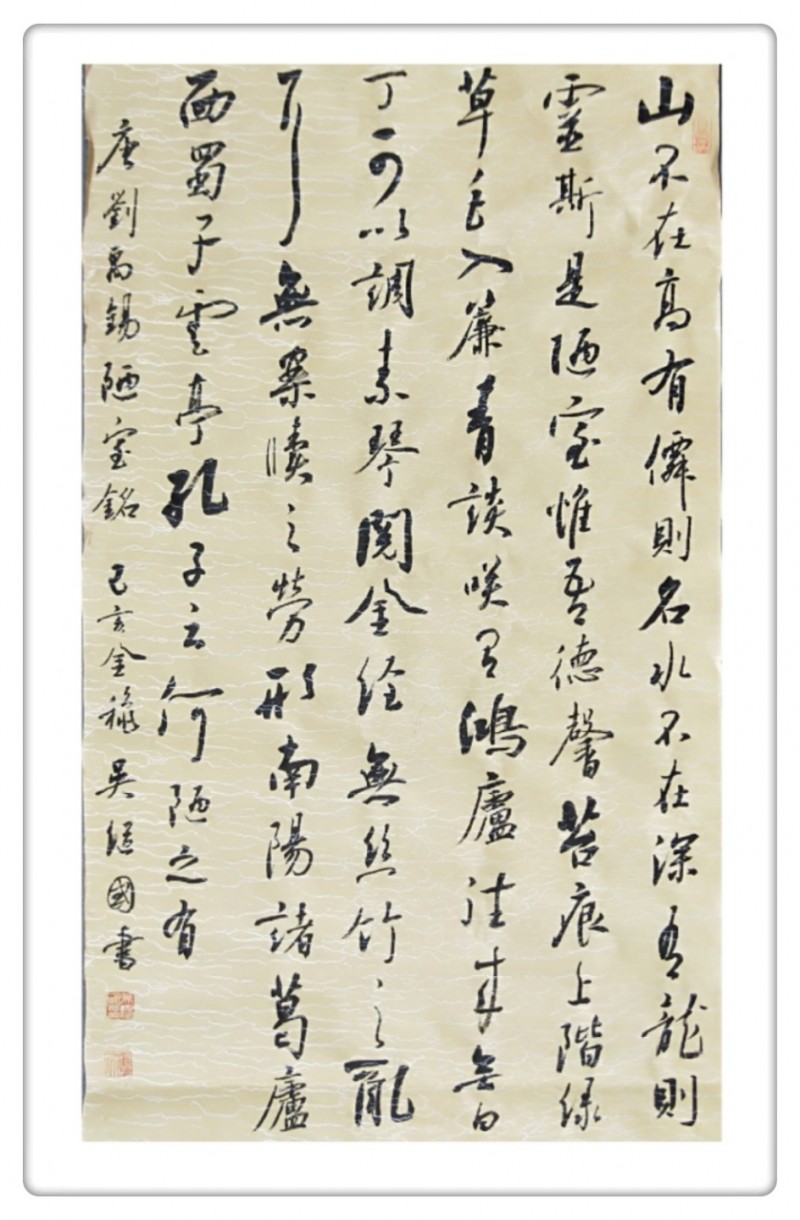 山不在高有僊則名水不在深有龍則
靈斯是陋室惟吾德馨苔痕上階緑
草色入簾青談咲有鴻廬往来無白
丁可以調素琴閱金經無絲竹之亂
耳無案牘之勞形南陽諸葛廬
西蜀子雲亭孔子云何陋之有
唐劉禹錫陋室銘 己亥金穐 吴國書